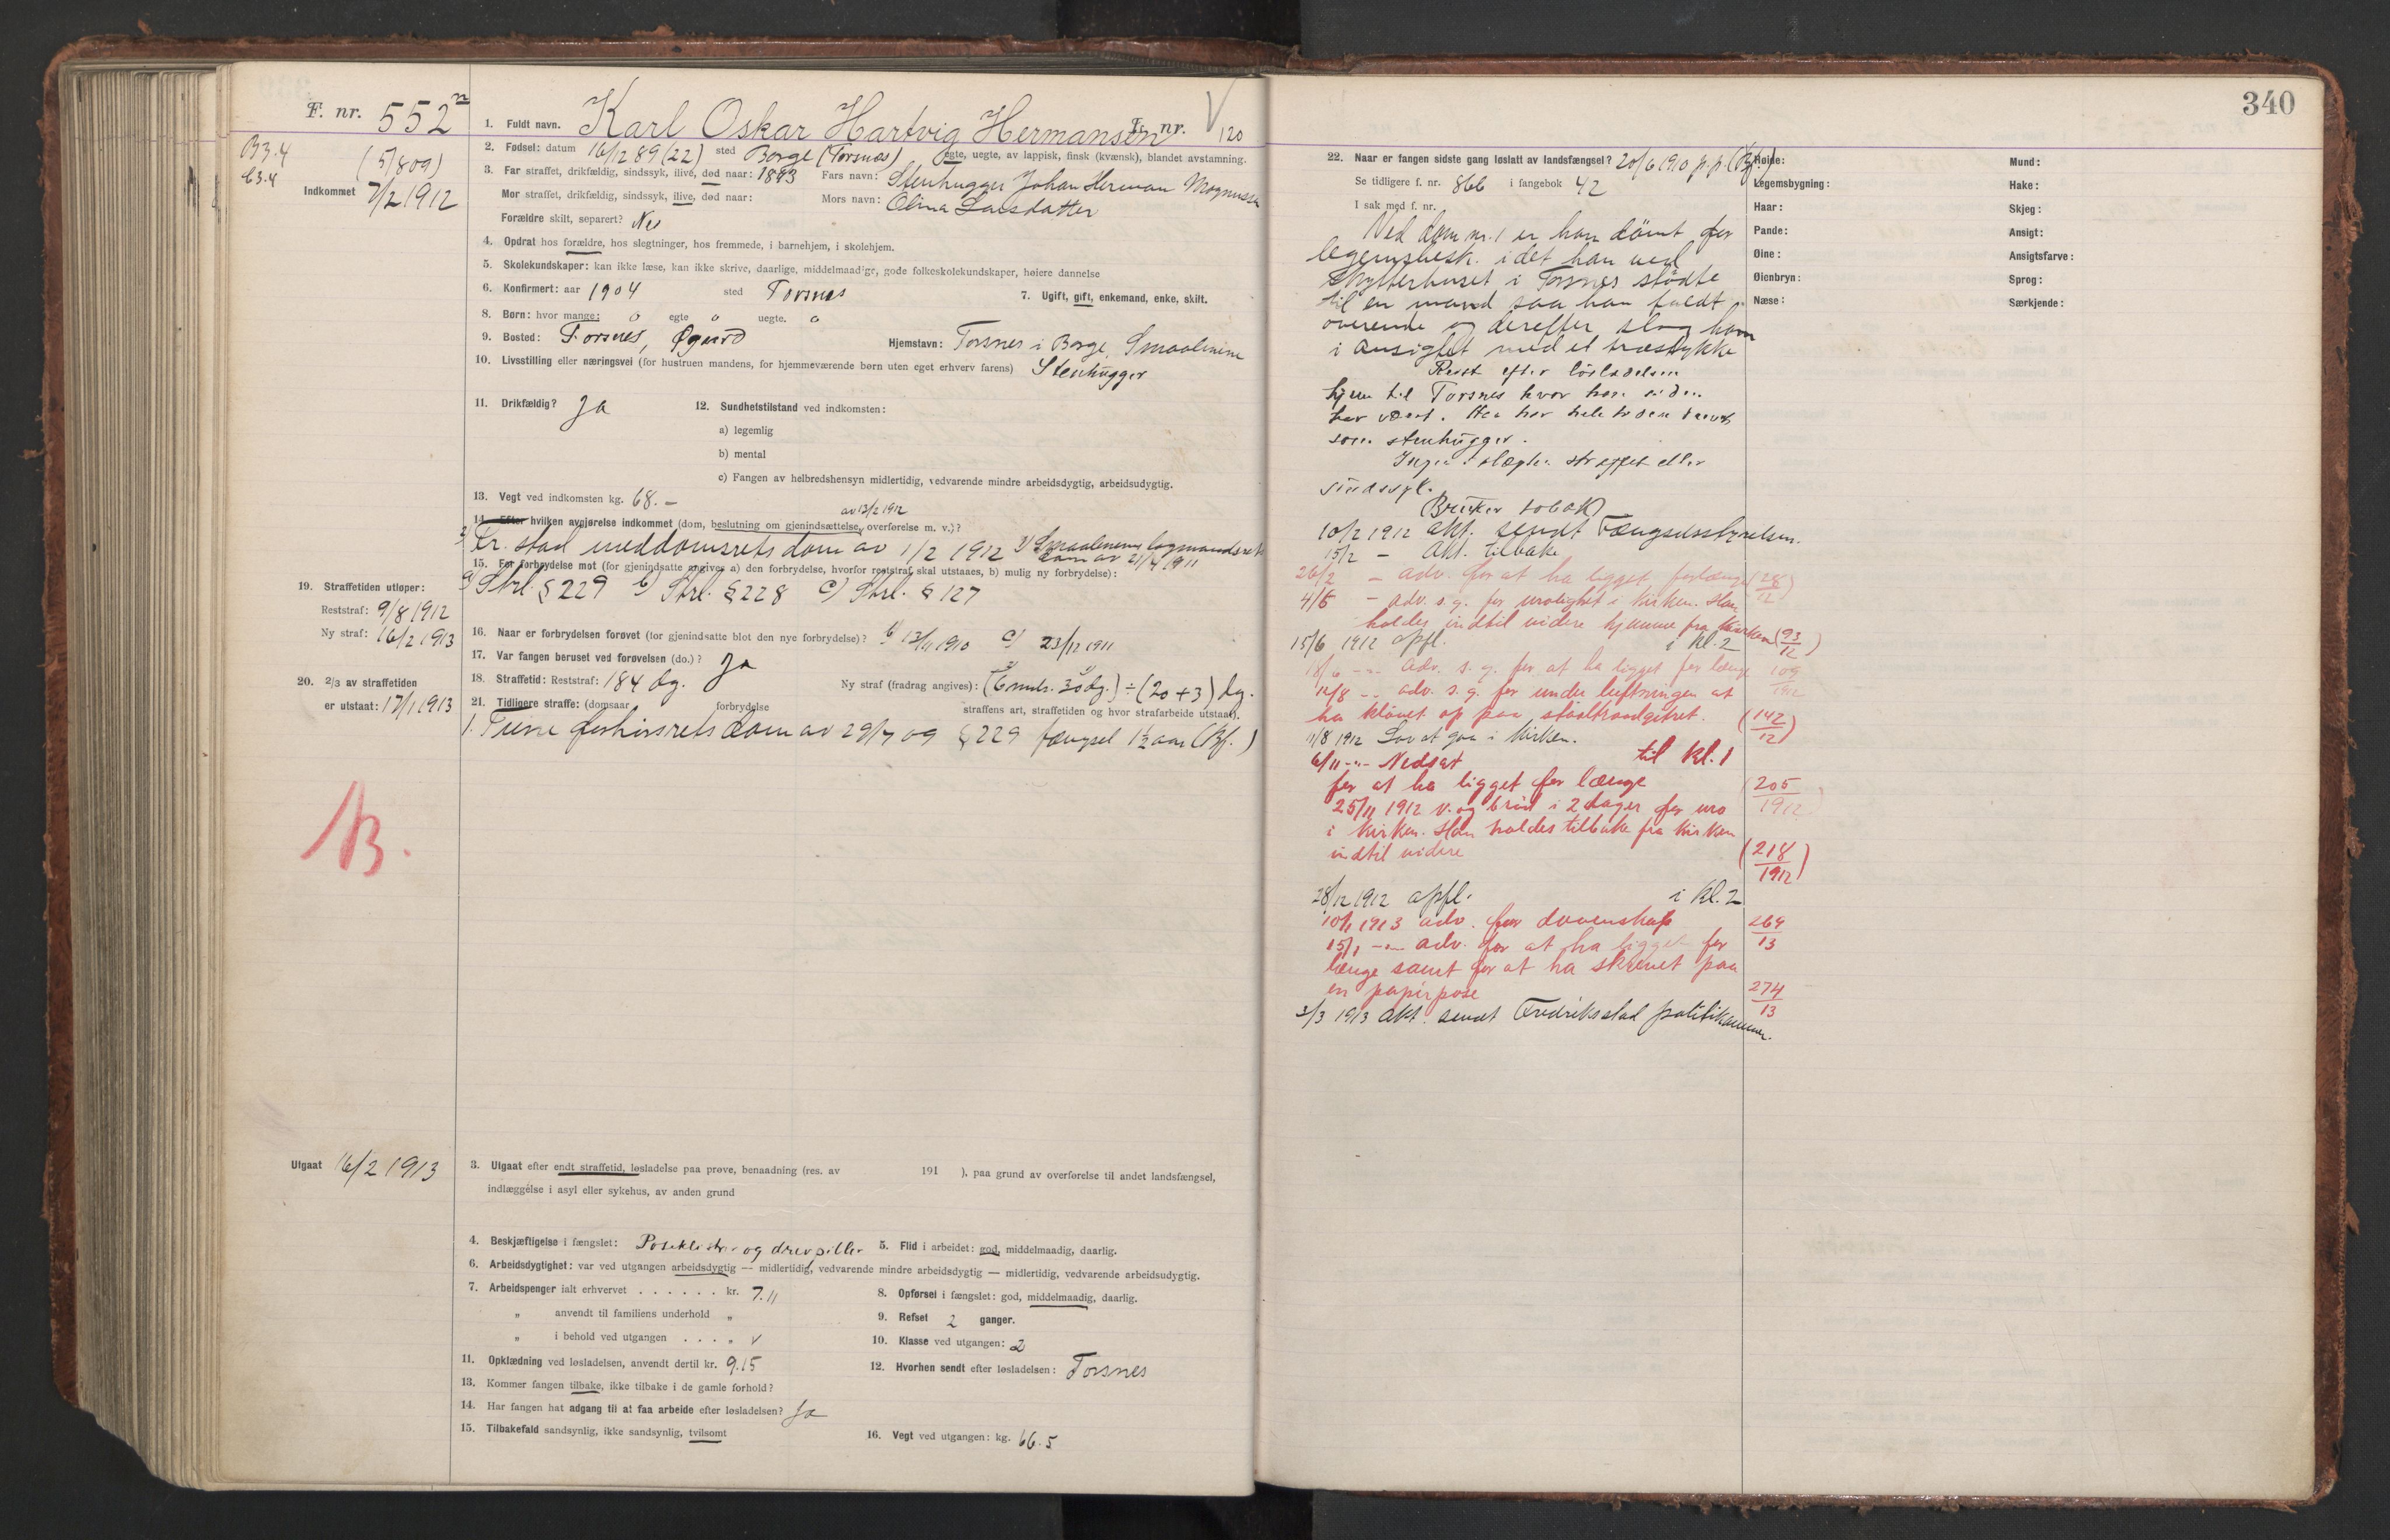 F. nr. 552
B3.4
C3.4
(5/809)
Indkommet 7/2 1912
1. Fuldt navn. Karl Oskar Hartvig Hermansen Fr. nr. 120
2. Fødsel: datum 16/12 89 (22) sted Borge (Torsnæs) egte, uegte, av lappisk, finsk (kvænsk), blandet avstamning.
3. Far straffet, drikfældig, sindssyk, ilive, død naar: 1893 Fars navn: Stenhugger Johan Herman Magnussen
Mor straffet, drikfældig, sindssyk, ilive, død naar: Mors navn: Olina Larsdatter
Forældre skilt, separert? Nei
4. Opdrat hos forældre, hos slegtninger, hos fremmede, i barnehjem, i skolehjem.
5. Skolekundskaper: kan ikke læse, kan ikke skrive, daarlige, middelmaadige, gode folkeskolekundskaper, høiere dannelse
6. Konfirmert: aar 1904 sted Torsnes 7. Ugift, gift, enkemand, enke, skilt.
8. Børn: hvor mange: 0 egte 0 uegte. 0
9. Bosted: Torsnes, Øgaard Hjemstavn: Torsnes i Borge, Smaalenene
10. Livsstilling eller næringsvei (for hustruen mandens, for hjemmeværende børn uten eget erhverv farens) Stenhugger
11. Drikfældig? Ja 12. Sundhetstilstand ved indkomsten:
a) legemlig
b) mental
c) Fangen av helbredshensyn midlertidig, vedvarende mindre arbeidsdygtig, arbeidsudygtig.
13. Vegt ved indkomsten kg. 68.-
av 13/2 1912
14. Efter hvilken avgjørelse indkommet (dom, beslutning om gjenindsættelse, overførelse m. v.)?
2) Fr.stad meddomsrets dom av 1/2 1912 3) Smaalenenes lagmandsrets
dom av 21/4 1911
15. For forbrydelse mot (for gjenindsatte angives a) den forbrydelse, hvorfor reststraf skal utstaaes, b) mulig ny forbrydelse):
a) Strl. § 229 b) Strl. § 228 c) Strl. § 127
19. Straffetiden utløper:
Reststraf: 9/8 1912
Ny straf: 16/2 1913
16. Naar er forbrydelsen forøvet (for gjenindsatte blot den nye forbrydelse)? b) 13/11 1910 c) 23/12 1911
17. Var fangen beruset ved forøvelsen (do.)? Ja
18. Straffetid: Reststraf: 184 dg. Ny straf (fradrag angives): (6 mndr. 30 dg.) ÷ (20 + 3) dg.
20. 2/3 av straffetiden
er utstaat: 17/1 1913
21. Tidligere straffe: (domsaar forbrydelse straffens art, straffetiden og hvor strafarbeide utstaat).
1. Tune forhørsrets dom av 29/7 09 § 229 fængsel 1½ aar (Bf.)
B.
Utgaat 16/2 1913
3. Utgaat efter endt straffetid, løsladelse paa prøve, benaadning (res. av 191 ), paa grund av overførelse til andet landsfængsel,
indlæggelse i asyl eller sykehus, av anden grund
4. Beskjæftigelse i fængslet: Poseklistr. og drevpiller 5. Flid i arbeidet: god, middelmaadig, daarlig.
6. Arbeidsdygtighet: var ved utgangen arbeidsdygtig — midlertidig, vedvarende mindre arbeidsdygtig — midlertidig, vedvarende arbeidsudygtig.
7. Arbeidspenger ialt erhvervet . . . . . . kr. 7.11 8. Opførsel i fængslet: god, middelmaadig, daarlig.
„ anvendt til familiens underhold „ 9. Refset 2 ganger.
„ i behold ved utgangen . . . „ 10. Klasse ved utgangen: 2
11. Opklædning ved løsladelsen, anvendt dertil kr. 9.15 12. Hvorhen sendt efter løsladelsen: Torsnes
13. Kommer fangen tilbake, ikke tilbake i de gamle forhold?
14. Har fangen hat adgang til at faa arbeide efter løsladelsen? Ja
15. Tilbakefald sandsynlig, ikke sandsynlig, tvilsomt 16. Vegt ved utgangen: kg. 66.5
340
22. Naar er fangen sidste gang løslatt av landsfængsel? 20/6 1910 p.p. (Bf.)
Se tidligere f. nr. 866 i fangebok 42
I sak med f. nr.
Ved dom nr. 1 er han dømt for
legemsbesk. idet han ved
Skytterhuset i Torsnes stødte
til en mand saa han faldt
overende og derefter slog ham
i ansigtet med et træstykke
Reist efter løsladelsen
hjem til Torsnes hvor han siden
har været. Han har hele tiden drevet
som stenhugger.
Ingen i slægten straffet eller
sindssyk.
Bruker tobak
10/2 1912 akt. sendt Fængselsstyrelsen.
15/2 - akt. tilbake
26/2 - adv. for at ha ligget forlænge (28/12)
4/6 - adv. s.g. for urolighet i kirken. Han
holdes indtil videre hjemme fra kirken (93/12)
15/6 1912 opfl. i kl. 2
18/6 -"- adv. s.g. for at ha ligget for længe 109/1912
12/8 -- adv. s.g. for under luftningen at
ha klövet op paa staaltraadgitret. (142/12)
11/8 1912 Lov at gaa i kirken.
6/11 -"- Nedsat til kl. 1
for at ha ligget for længe (205/1912)
25/11 1912 v. og brød i 2 dager for uro
i kirken. Han holdes tilbake fra kirken
indtil videre (218/1912)
28/12 1912 opfl. i kl. 2
10/1 1913 adv. for dovenskap 269/13
15/1 -"- adv. for at ha ligget for
længe samt for at ha skrevet paa
en papirpose 274/13
3/3 1913 akt. sendt Fredriksstad politikammer.
Høide:
Legemsbygning:
Haar:
Pande:
Øine:
Øienbryn:
Næse:
Mund:
Hake:
Skjeg:
Ansigt:
Ansigtsfarve:
Sprog:
Særkjende: